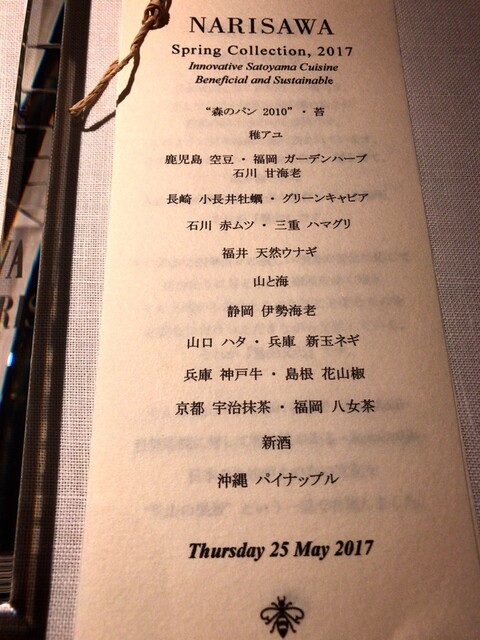 NARISAWA
Spring Collection, 2017
Innovative Satoyama Cuisine
Beneficial and Sustainable
“森のパン 2010”・苔
稚アユ
鹿児島 空豆 ・ 福岡 ガーデンハーブ
石川 甘海老
長崎 小長井牡蠣 ・ グリーンキャビア
石川 赤ムツ ・ 三重 ハマグリ
福井 天然ウナギ
山と海
静岡 伊勢海老
山口 ハタ ・ 兵庫 新玉ネギ
兵庫 神戸牛 ・ 島根 花山椒
京都 宇治抹茶 ・ 福岡 八女茶
新酒
沖縄 パイナップル
Thursday 25 May 2017